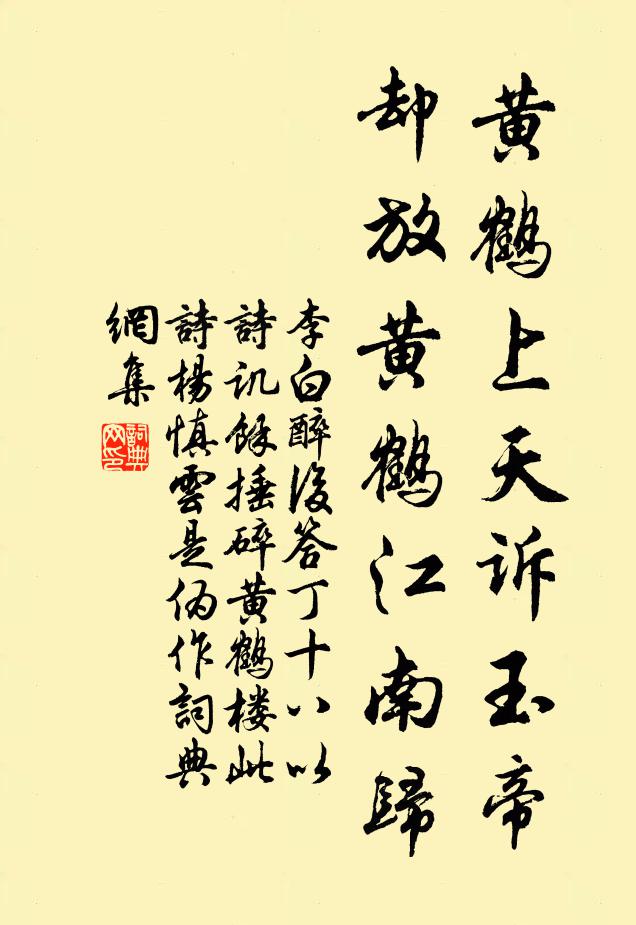 黄鶴上天訴玉帝
却放黄鶴江南歸
李白醉後答丁十八以
詩譏餘捶碎黄鶴楼此
詩楊慎雲是偽作詞典
網集
詞典
网印